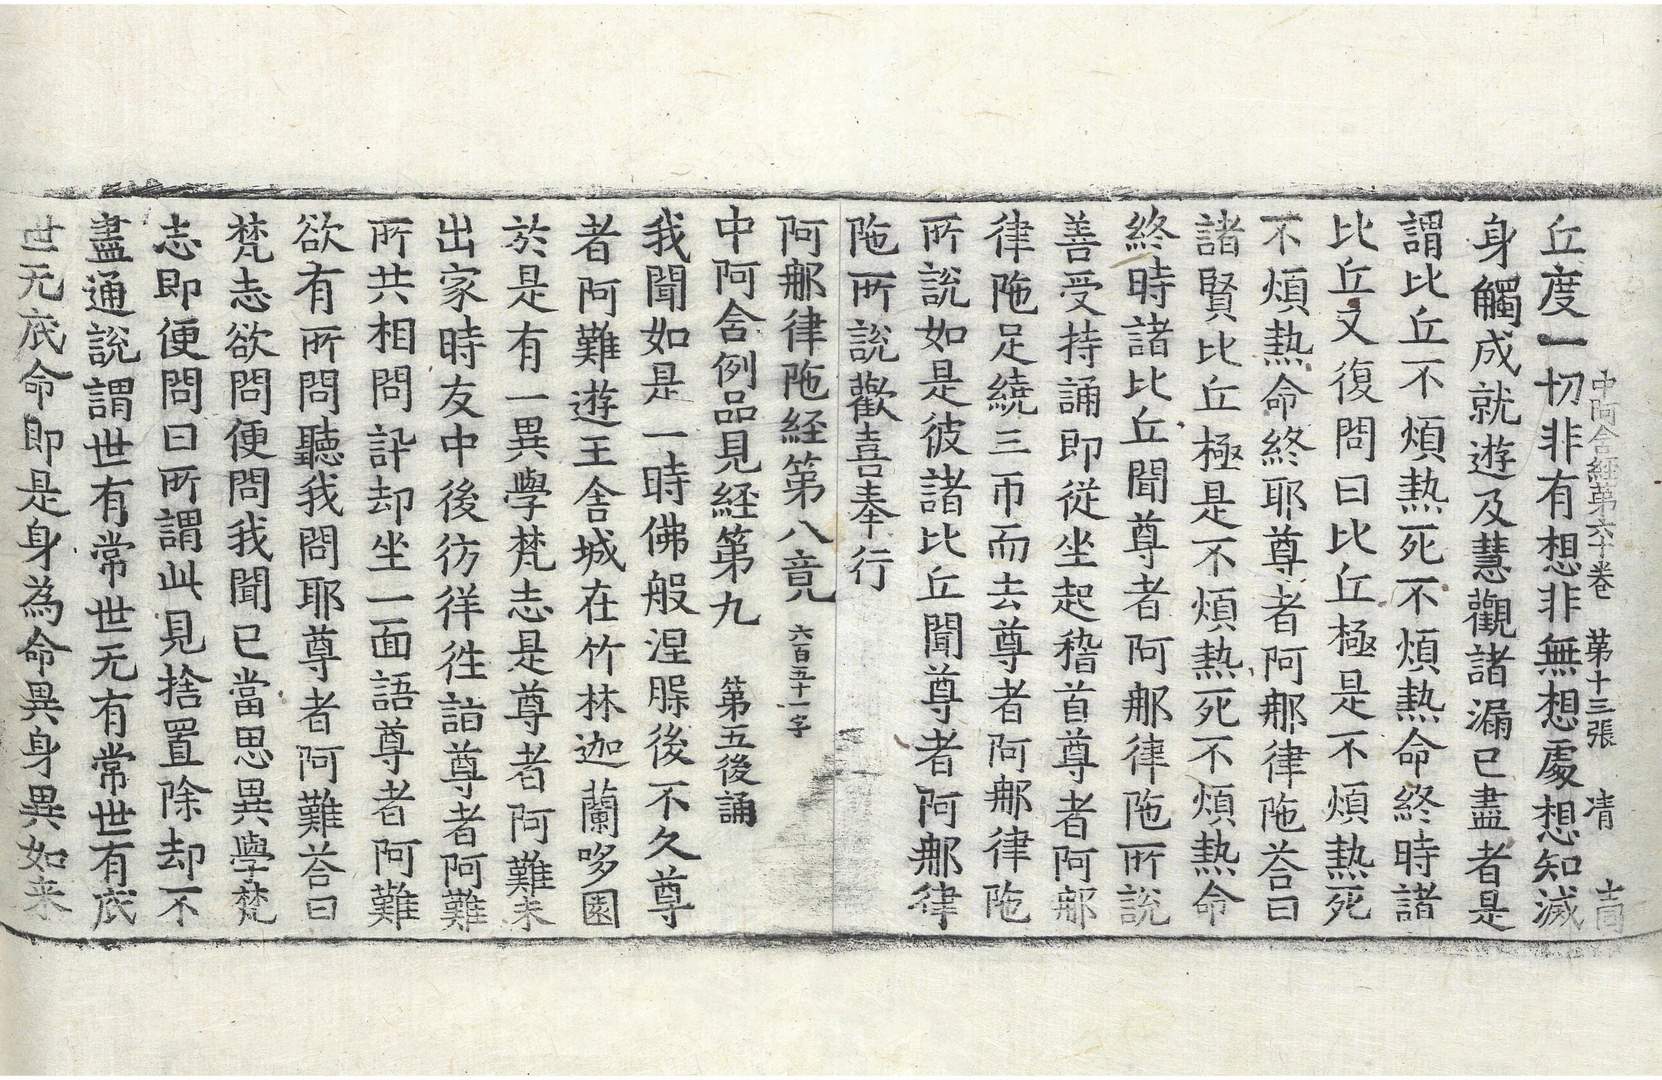 中阿含經第六十卷 第十三張 凊
丘度一切非有想非無想處想知滅
身觸成就遊及慧觀諸漏已盡者是
謂比丘不煩熱死不煩熱命終時諸
比丘又復問曰比丘極是不煩熱死
不煩熱命終耶尊者阿那律陁荅曰
諸賢比丘極是不煩熱死不煩熱命
終時諸比丘聞尊者阿那律陁所說
善受持誦即從坐起稽首尊者阿那
律陁足繞三帀而去尊者阿那律陁
所說如是彼諸比丘聞尊者阿那律
陁所說歡喜奉行
阿那律陁経第八竟 六百五十一字
中阿含例品見経第九 第五後誦
我聞如是一時佛般涅槃後不久尊
者阿難遊王舍城在竹林迦蘭哆園
於是有一異學梵志是尊者阿難未
出家時友中後彷徉徃詣尊者阿難
所共相問訊却坐一面語尊者阿難
欲有所問聽我問耶尊者阿難荅曰
梵志欲問便問我聞已當思異學梵
志即便問曰所謂此見捨置除却不
盡通說謂世有常世无有常世有底
世无底命即是身為命異身異如来